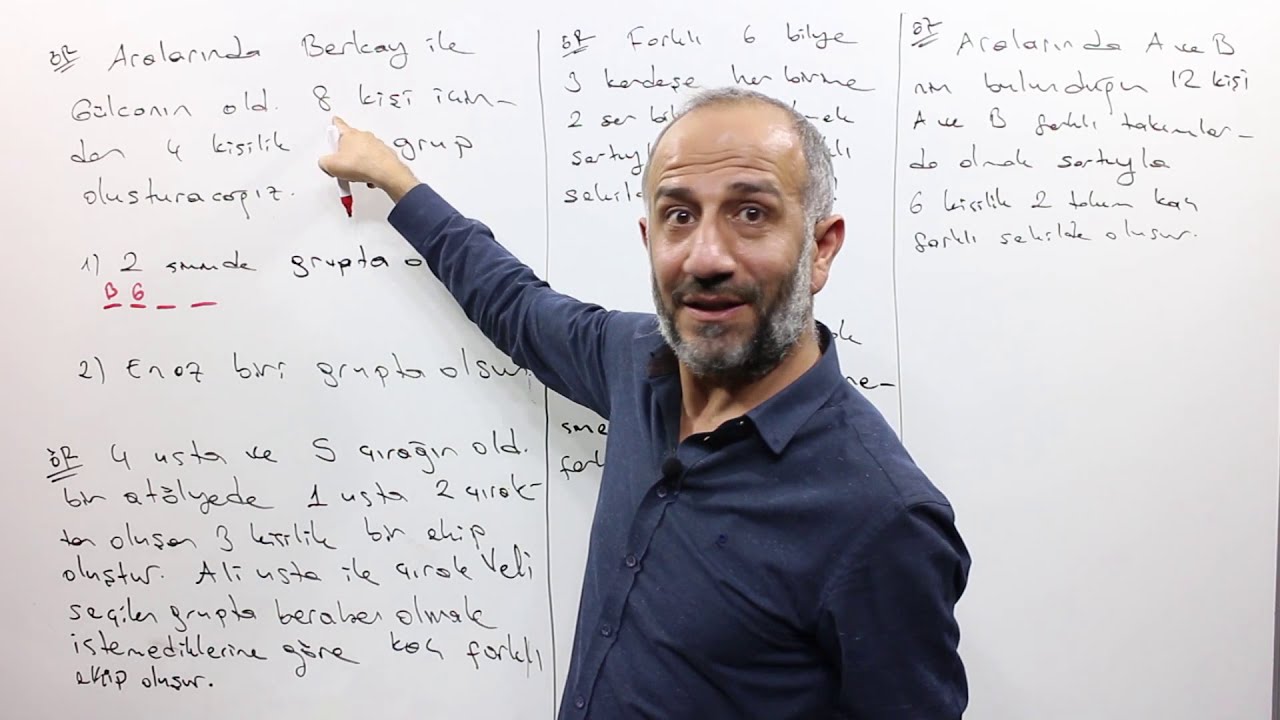 ÖR Aralarında Berkay ile
Gülcanın old. 8 kişi için-
den 4 kişilik grup
oluşturacağız.
1) 2 sininde grupta
B G _ _
2) En az biri grupta olsun
ÖR 4 usta ve 5 çırağın old.
bir atölyede 1 usta 2 çırak-
tan oluşan 3 kişilik bir ekip
oluştur. Ali usta ile çırak Veli
seçilen grupta beraber olmak
istemediklerine göre kaç farklı
ekip oluşur.
ÖR Farklı 6 bilye
3 kardeşe her birine
2 şer
ÖR Aralarında A ve B
nın bulunduğun 12 kişi
A ve B farklı takımlar-
da olmak şartıyla
6 kişilik 2 takım kaç
farklı şekilde oluşur.